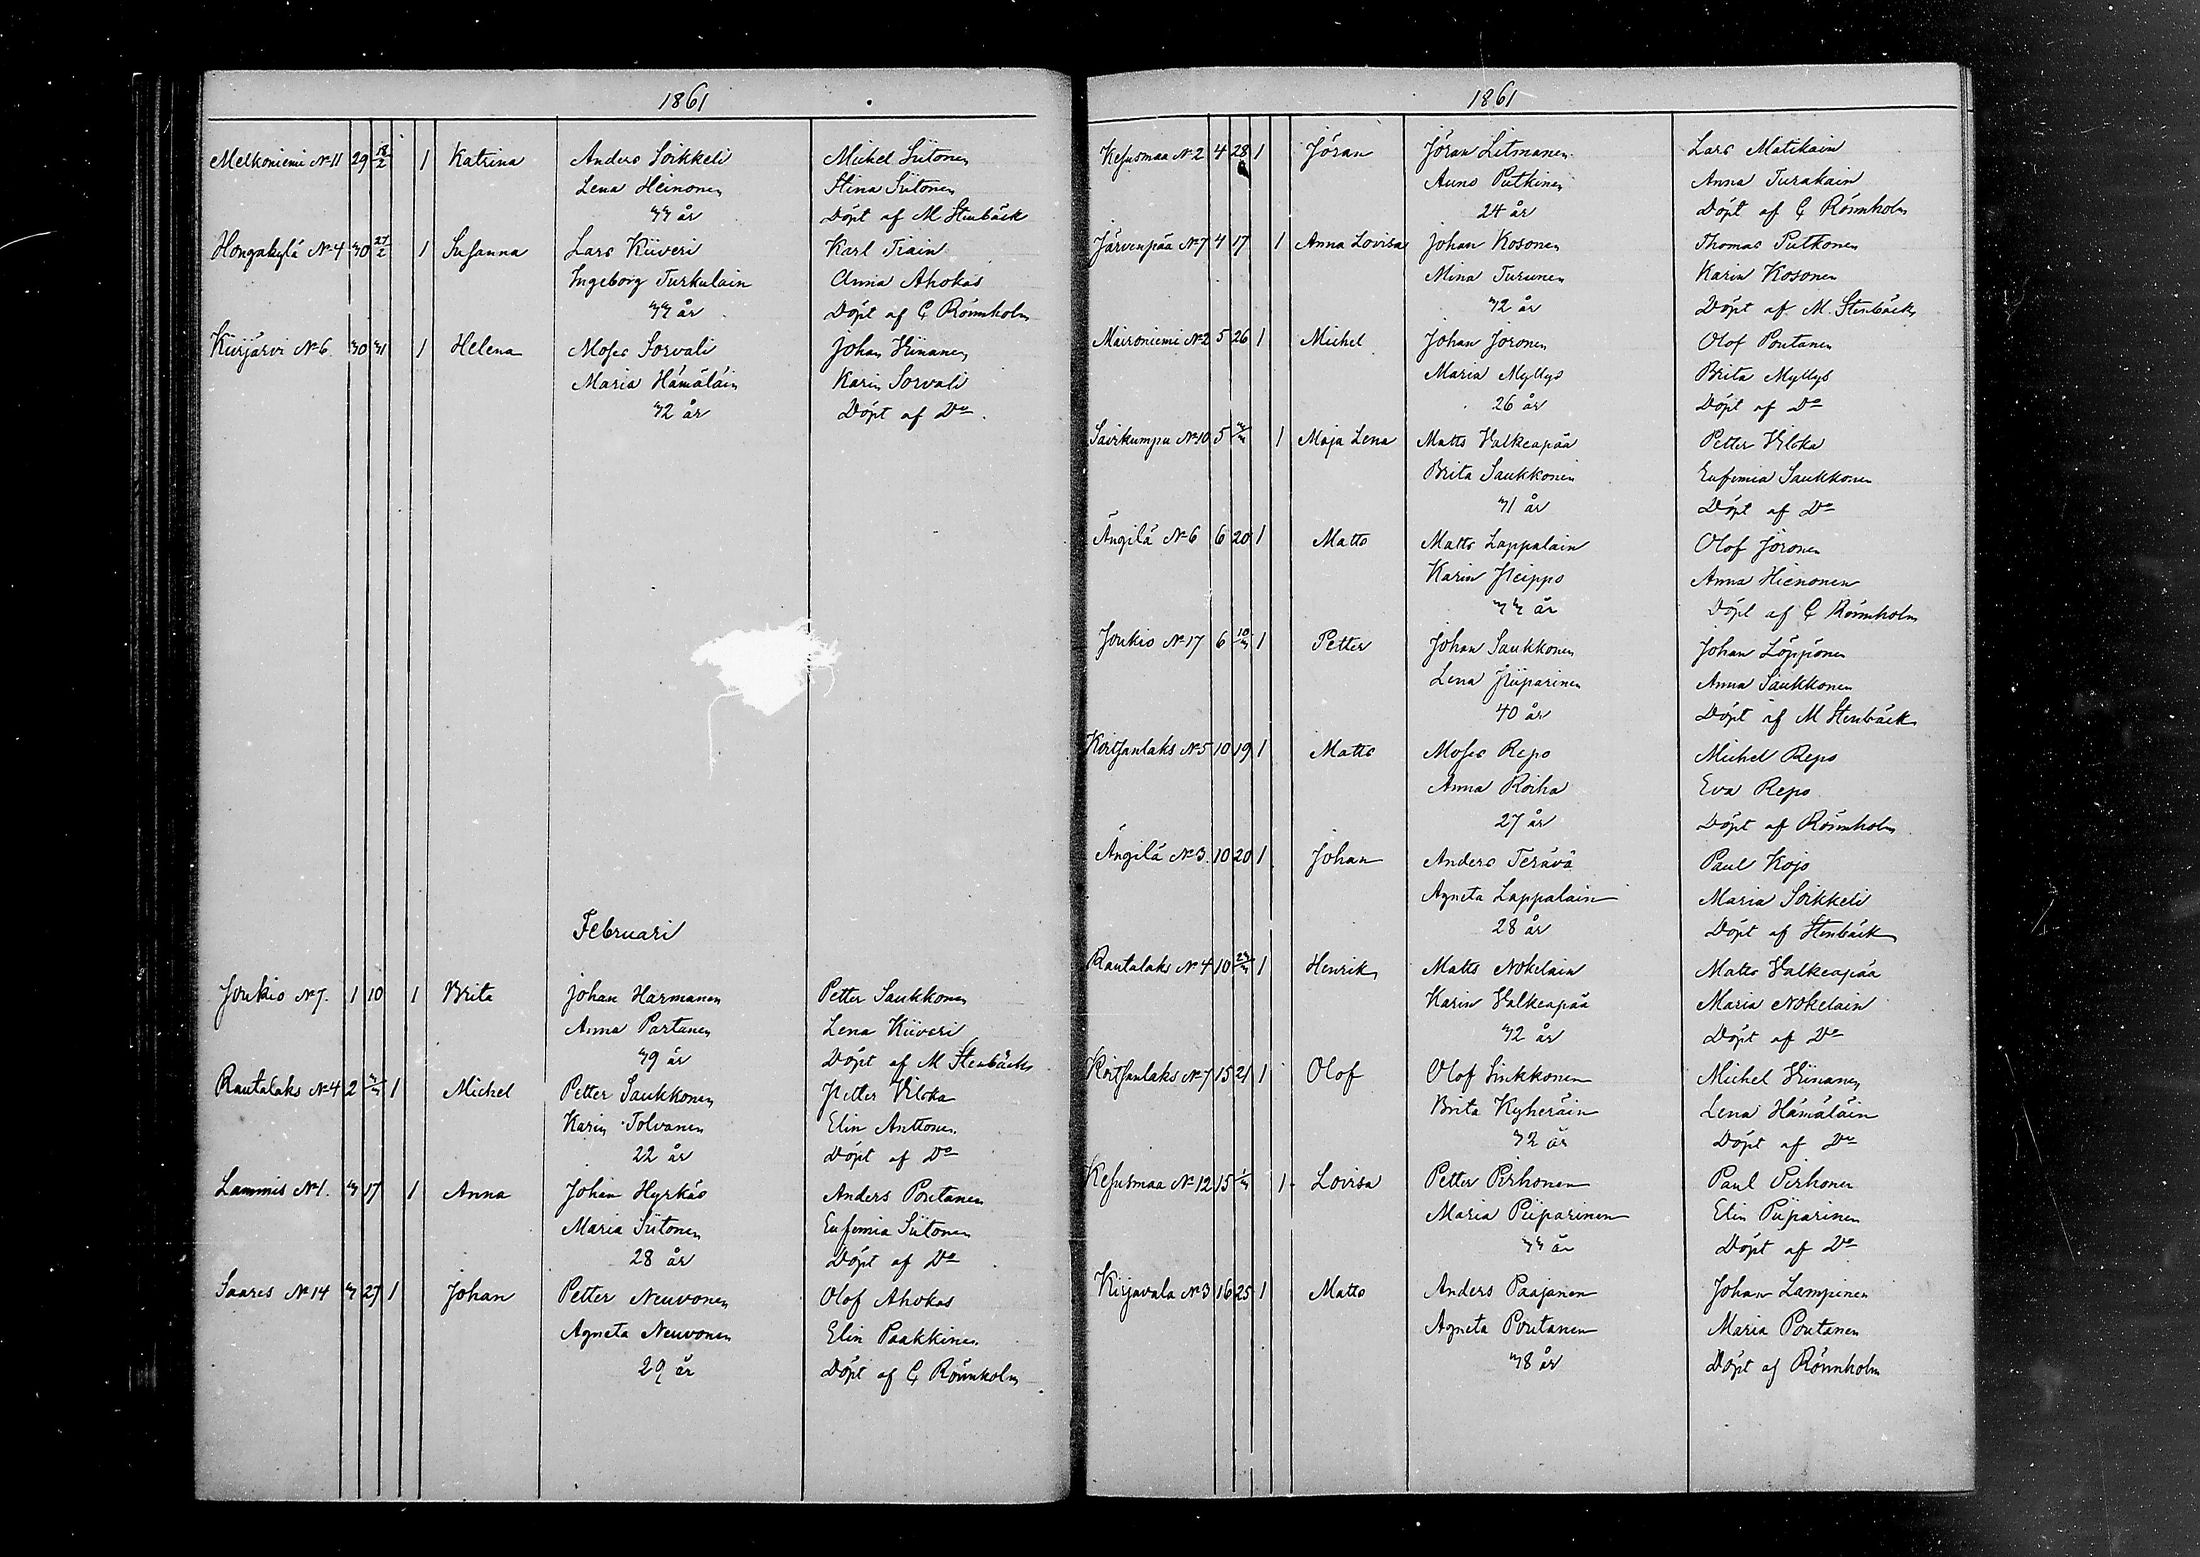 1861
Melkoniemi No 11 29 18/2 1 Katrina Anders Soikkeli Michel Siitonen
Lena Heinonen Stina Siitonen
33 år Döpt af M Stenbäck
Hongakylä No 4 30 27/2 1 Susanna Lars Kiiveri Karl Tiain
Ingeborg Turkulain Anna Ahokas
33 år Döpt af G Rönnholm
Kiirjärvi No 6 30 31 1 Helena Moses Sorvali Johan Hiinanen
Maria Hämäläin Karin Sorvali
32 år Döpt af Do
Februari
Joukio No 7. 1 10 1 Brita Johan Harmanen Petter Saukkonen
Anna Partanen Lena Kiiveri
39 år Döpt af M Stenbäck
Rautalaks No 4 2 3/3 1 Michel Petter Saukkonen Petter Vilska
Karin Tolvanen Elin Anttonen
22 år Döpt af Do
Lammis No 1. 3 17 1 Anna Johan Hyrkäs Anders Poutanen
Maria Siitonen Eufemia Siitonen
28 år Döpt af Do
Saares No 14 3 27 1 Johan Petter Neuvonen Olof Ahokas
Agneta Neuvonen Elin Paakkinen
29 år Döpt af G Rönnholm
1861
Kesusmaa No 2 4 28 1 Jöran Jöran Litmanen Lars Matikain
Auno Putkinen Anna Turakain
24 år Döpt af G Rönnholm
Järvenpää No 7 4 17 1 Anna Lovisa Johan Kosonen Thomas Putkonen
Mina Turunen Karin Kosonen
32 år Döpt af M. Stenbäck
Maironiemi No 2 5 26 1 Michel Johan Joronen Olof Poutanen
Maria Myllys Brita Myllys
26 år Döpt af Do
Sairkumpu No 10 5 3/3 1 Maja Lena Matts Valkeapää Petter Vilska
Brita Saukkonen Eufemia Saukkonen
31 år Döpt af Do
Ängilä No 6 6 20 1 Matts Matts Lappalain Olof Joronen
Karin Heippo Anna Hienonen
33 år Döpt af G Rönnholm
Joukio No 17 6 10/3 1 Petter Johan Saukkonen Johan Löppönen
Lena Piiparinen Anna Saukkonen
40 år Döpt af M Stenbäck
Koitsanlaks No 5 10 19 1 Matts Moses Repo Michel Repo
Anna Roiha Eva Repo
27 år Döpt af Rönnholm
Ängilä No 3. 10 20 1 Johan Anders Terävä Paul Kojo
Agneta Lappalain Maria Soikkeli
28 år Döpt af Stenbäck
Rautalaks No 4 10 23/3 1 Henrik Matts Nokelain Matts Valkeapää
Karin Valkeapää Maria Nokelain
32 år Döpt af Do
Koitsanlaks No 7 15 21 1 Olof Olof Sinkkonen Michel Hiinanen
Brita Kyheräin Lena Hämäläin
32 år Döpt af Do
Kesusmaa No 12 15 1/3 1 Lovisa Petter Pirhonen Paul Pirhonen
Maria Piiparinen Elin Piiparinen
33 år Döpt af Do
Kirjavala No 3 16 25 1 Matts Anders Paajanen Johan Lampinen
Agneta Poutanen Maria Poutanen
38 år Döpt af Rönnholm